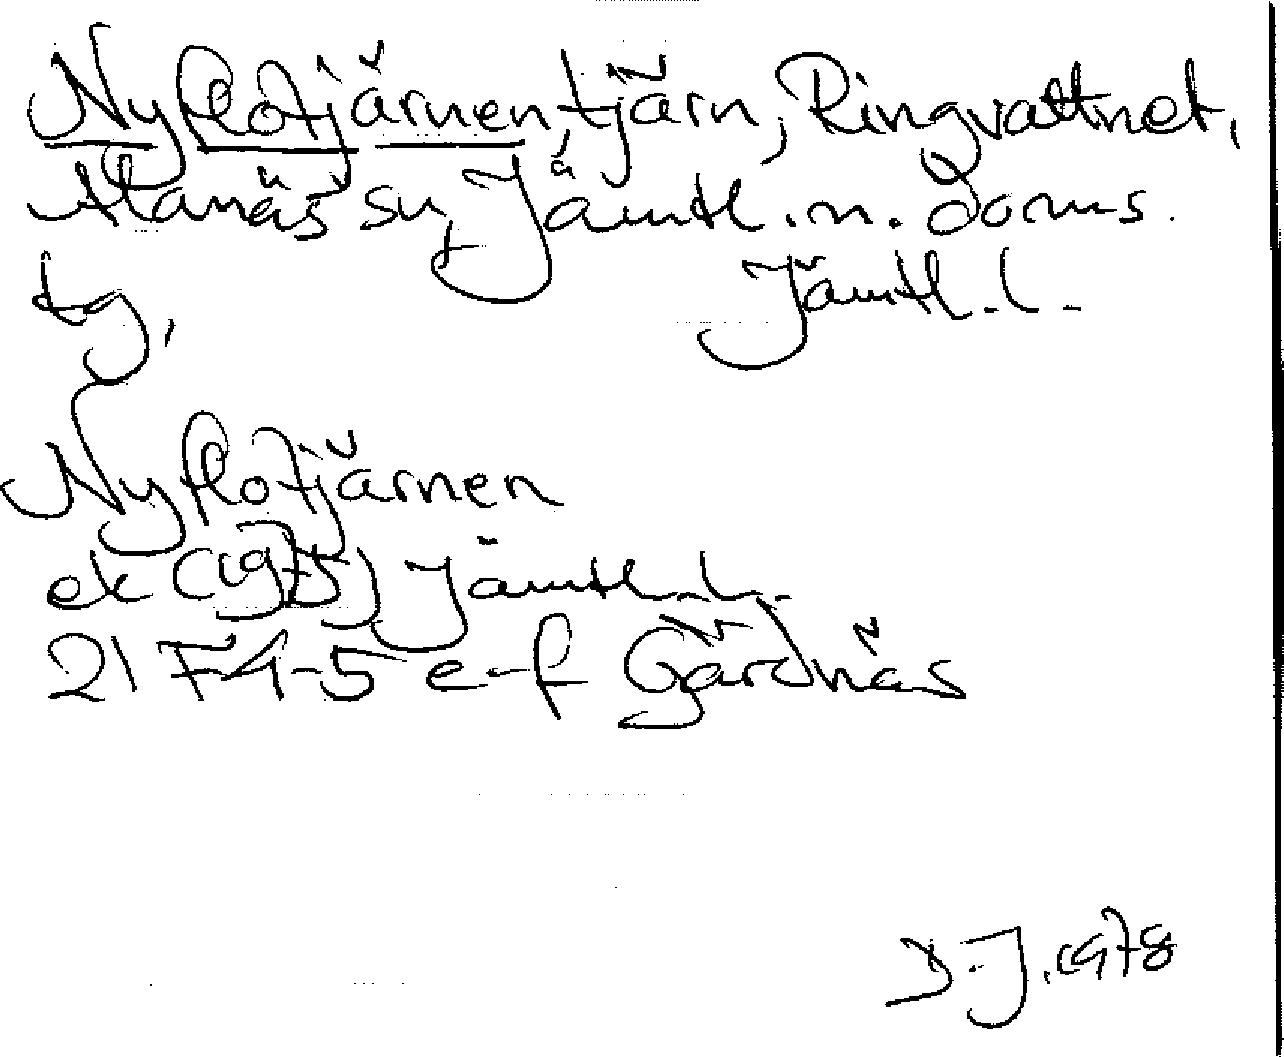 Nyflotjärnen, tjärn, Ringvattnet,
Alanäs sn, Jämtl. n. doms.
tg,
Jämtl. l.
Nyflotjärnen
ek (1975) Jämtl. l.
21 F 4-5 e-f Gärdnäs
D. J. 1978